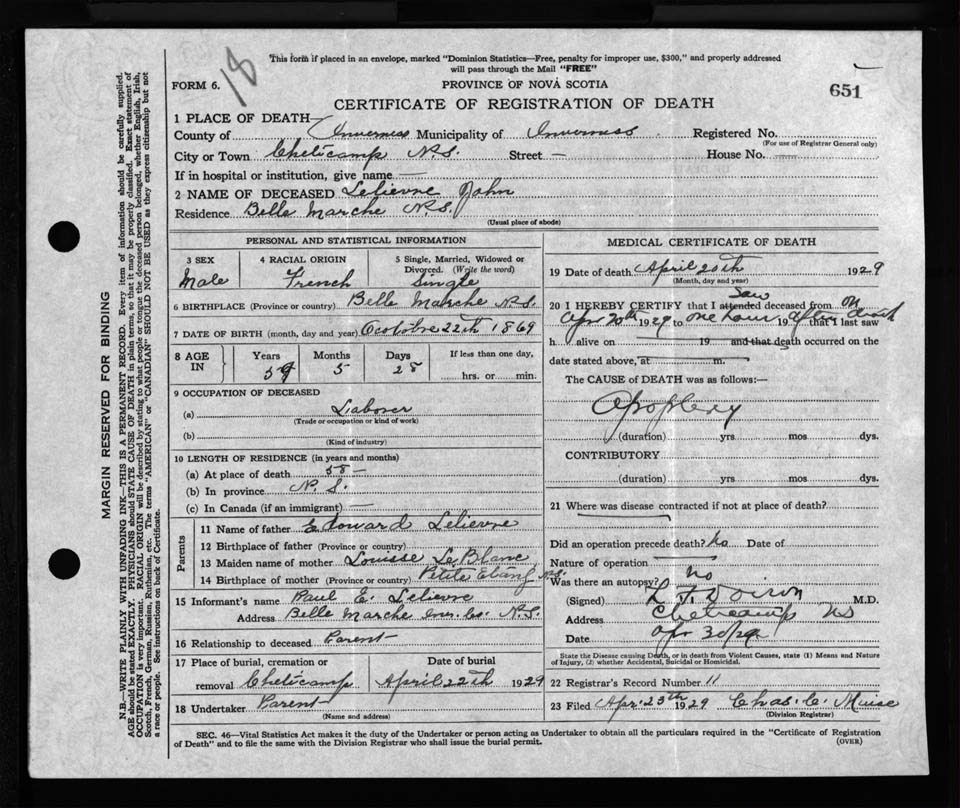 18
This form if placed in an envelope, marked "Dominion Statistics—Free, penalty for improper use, $300," and properly addressed
will pass through the Mail "FREE"
FORM 6.
PROVINCE OF NOVA SCOTIA
651
CERTIFICATE OF REGISTRATION OF DEATH
1 PLACE OF DEATH
County of Inverness Municipality of Inverness Registered No.
(For use of Registrar General only)
City or Town Cheticamp N.S. Street — House No.
If in hospital or institution, give name —
2 NAME OF DECEASED Lelievre John
Residence Belle Marche N.S.
(Usual place of abode)
PERSONAL AND STATISTICAL INFORMATION
3 SEX 4 RACIAL ORIGIN 5 Single, Married, Widowed or
Divorced. (Write the word)
Male French Single
6 BIRTHPLACE (Province or country) Belle Marche N.S.
7 DATE OF BIRTH (month, day and year) Octobre 22th 1869
8 AGE IN Years Months Days If less than one day,
59 5 28 hrs. or min.
9 OCCUPATION OF DECEASED
(a) Laborer
(Trade or occupation or kind of work)
(b)
(Kind of industry)
10 LENGTH OF RESIDENCE (in years and months)
(a) At place of death 58 —
(b) In province N.S.
(c) In Canada (if an immigrant) —
Parents
11 Name of father Edouard Lelievre
12 Birthplace of father (Province or country)
13 Maiden name of mother Louise LeBlanc
14 Birthplace of mother (Province or country) Petite Etang N.S.
15 Informant's name Paul E. Lelievre
Address Belle Marche Inv. Co. N.S.
16 Relationship to deceased Parent
17 Place of burial, cremation or Date of burial
removal Cheticamp April 22th 1929
18 Undertaker Parent
(Name and address)
MEDICAL CERTIFICATE OF DEATH
19 Date of death April 20th 1929
(Month, day and year)
saw
20 I HEREBY CERTIFY that I attended deceased from on
Apr 20th 1929 to one hour 19 after death that I last saw
h alive on 19 and that death occurred on the
date stated above, at m.
The CAUSE OF DEATH was as follows:—
Apoplexy
(duration) yrs. mos. dys.
CONTRIBUTORY
(duration) yrs. mos. dys.
21 Where was disease contracted if not at place of death?
Did an operation precede death? No Date of
Nature of operation
Was there an autopsy? No
(Signed) M.D.
Address Cheticamp NS
Date Apr 30/29
State the Disease causing Death, or in death from Violent Causes, state (1) Means and Nature
of Injury, (2) whether Accidental, Suicidal or Homicidal.
22 Registrar's Record Number 11
23 Filed Apr. 25th 1929 Chas. C. Muise
(Division Registrar)
SEC. 46—Vital Statistics Act makes it the duty of the Undertaker or person acting as Undertaker to obtain all the particulars required in the "Certificate of Registration
of Death" and to file the same with the Division Registrar who shall issue the burial permit.
(OVER)
MARGIN RESERVED FOR BINDING
N.B.—WRITE PLAINLY WITH UNFADING INK—THIS IS A PERMANENT RECORD. Every item of information should be carefully supplied.
AGE should be stated EXACTLY. PHYSICIANS should STATE CAUSE OF DEATH in plain terms, so that it may be properly classified. Exact statement of
OCCUPATION is very important. RACIAL ORIGIN will be described by stating to what people or tongue the deceased person belonged, whether English, Irish,
Scotch, French, German, Russian, Ruthenian, etc. The terms "AMERICAN" or "CANADIAN" SHOULD NOT BE USED as they express citizenship but not
a race or people. See instructions on back of Certificate.